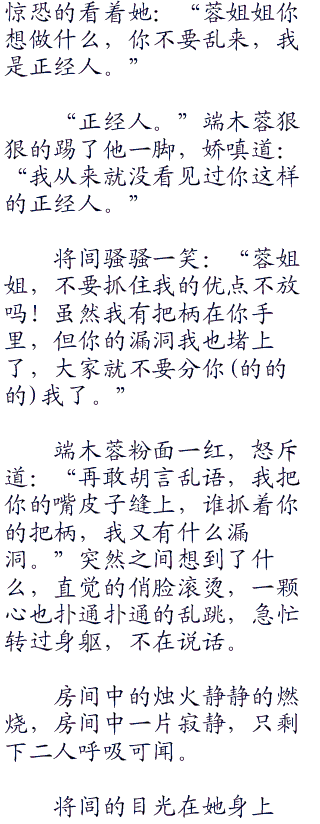 惊恐的看着她：“蓉姐姐你
想做什么，你不要乱来，我
是正经人。”
“正经人。”端木蓉狠
狠的踢了他一脚，娇嗔道：
“我从来就没看见过你这样
的正经人。”
将闾骚骚一笑：“蓉姐
姐，不要抓住我的优点不放
吗！虽然我有把柄在你手
里，但你的漏洞我也堵上
了，大家就不要分你(的的
的)我了。”
端木蓉粉面一红，怒斥
道：“再敢胡言乱语，我把
你的嘴皮子缝上，谁抓着你
的把柄，我又有什么漏
洞。”突然之间想到了什
么，直觉的俏脸滚烫，一颗
心也扑通扑通的乱跳，急忙
转过身躯，不在说话。
房间中的烛火静静的燃
烧，房间中一片寂静，只剩
下二人呼吸可闻。
将闾的目光在她身上